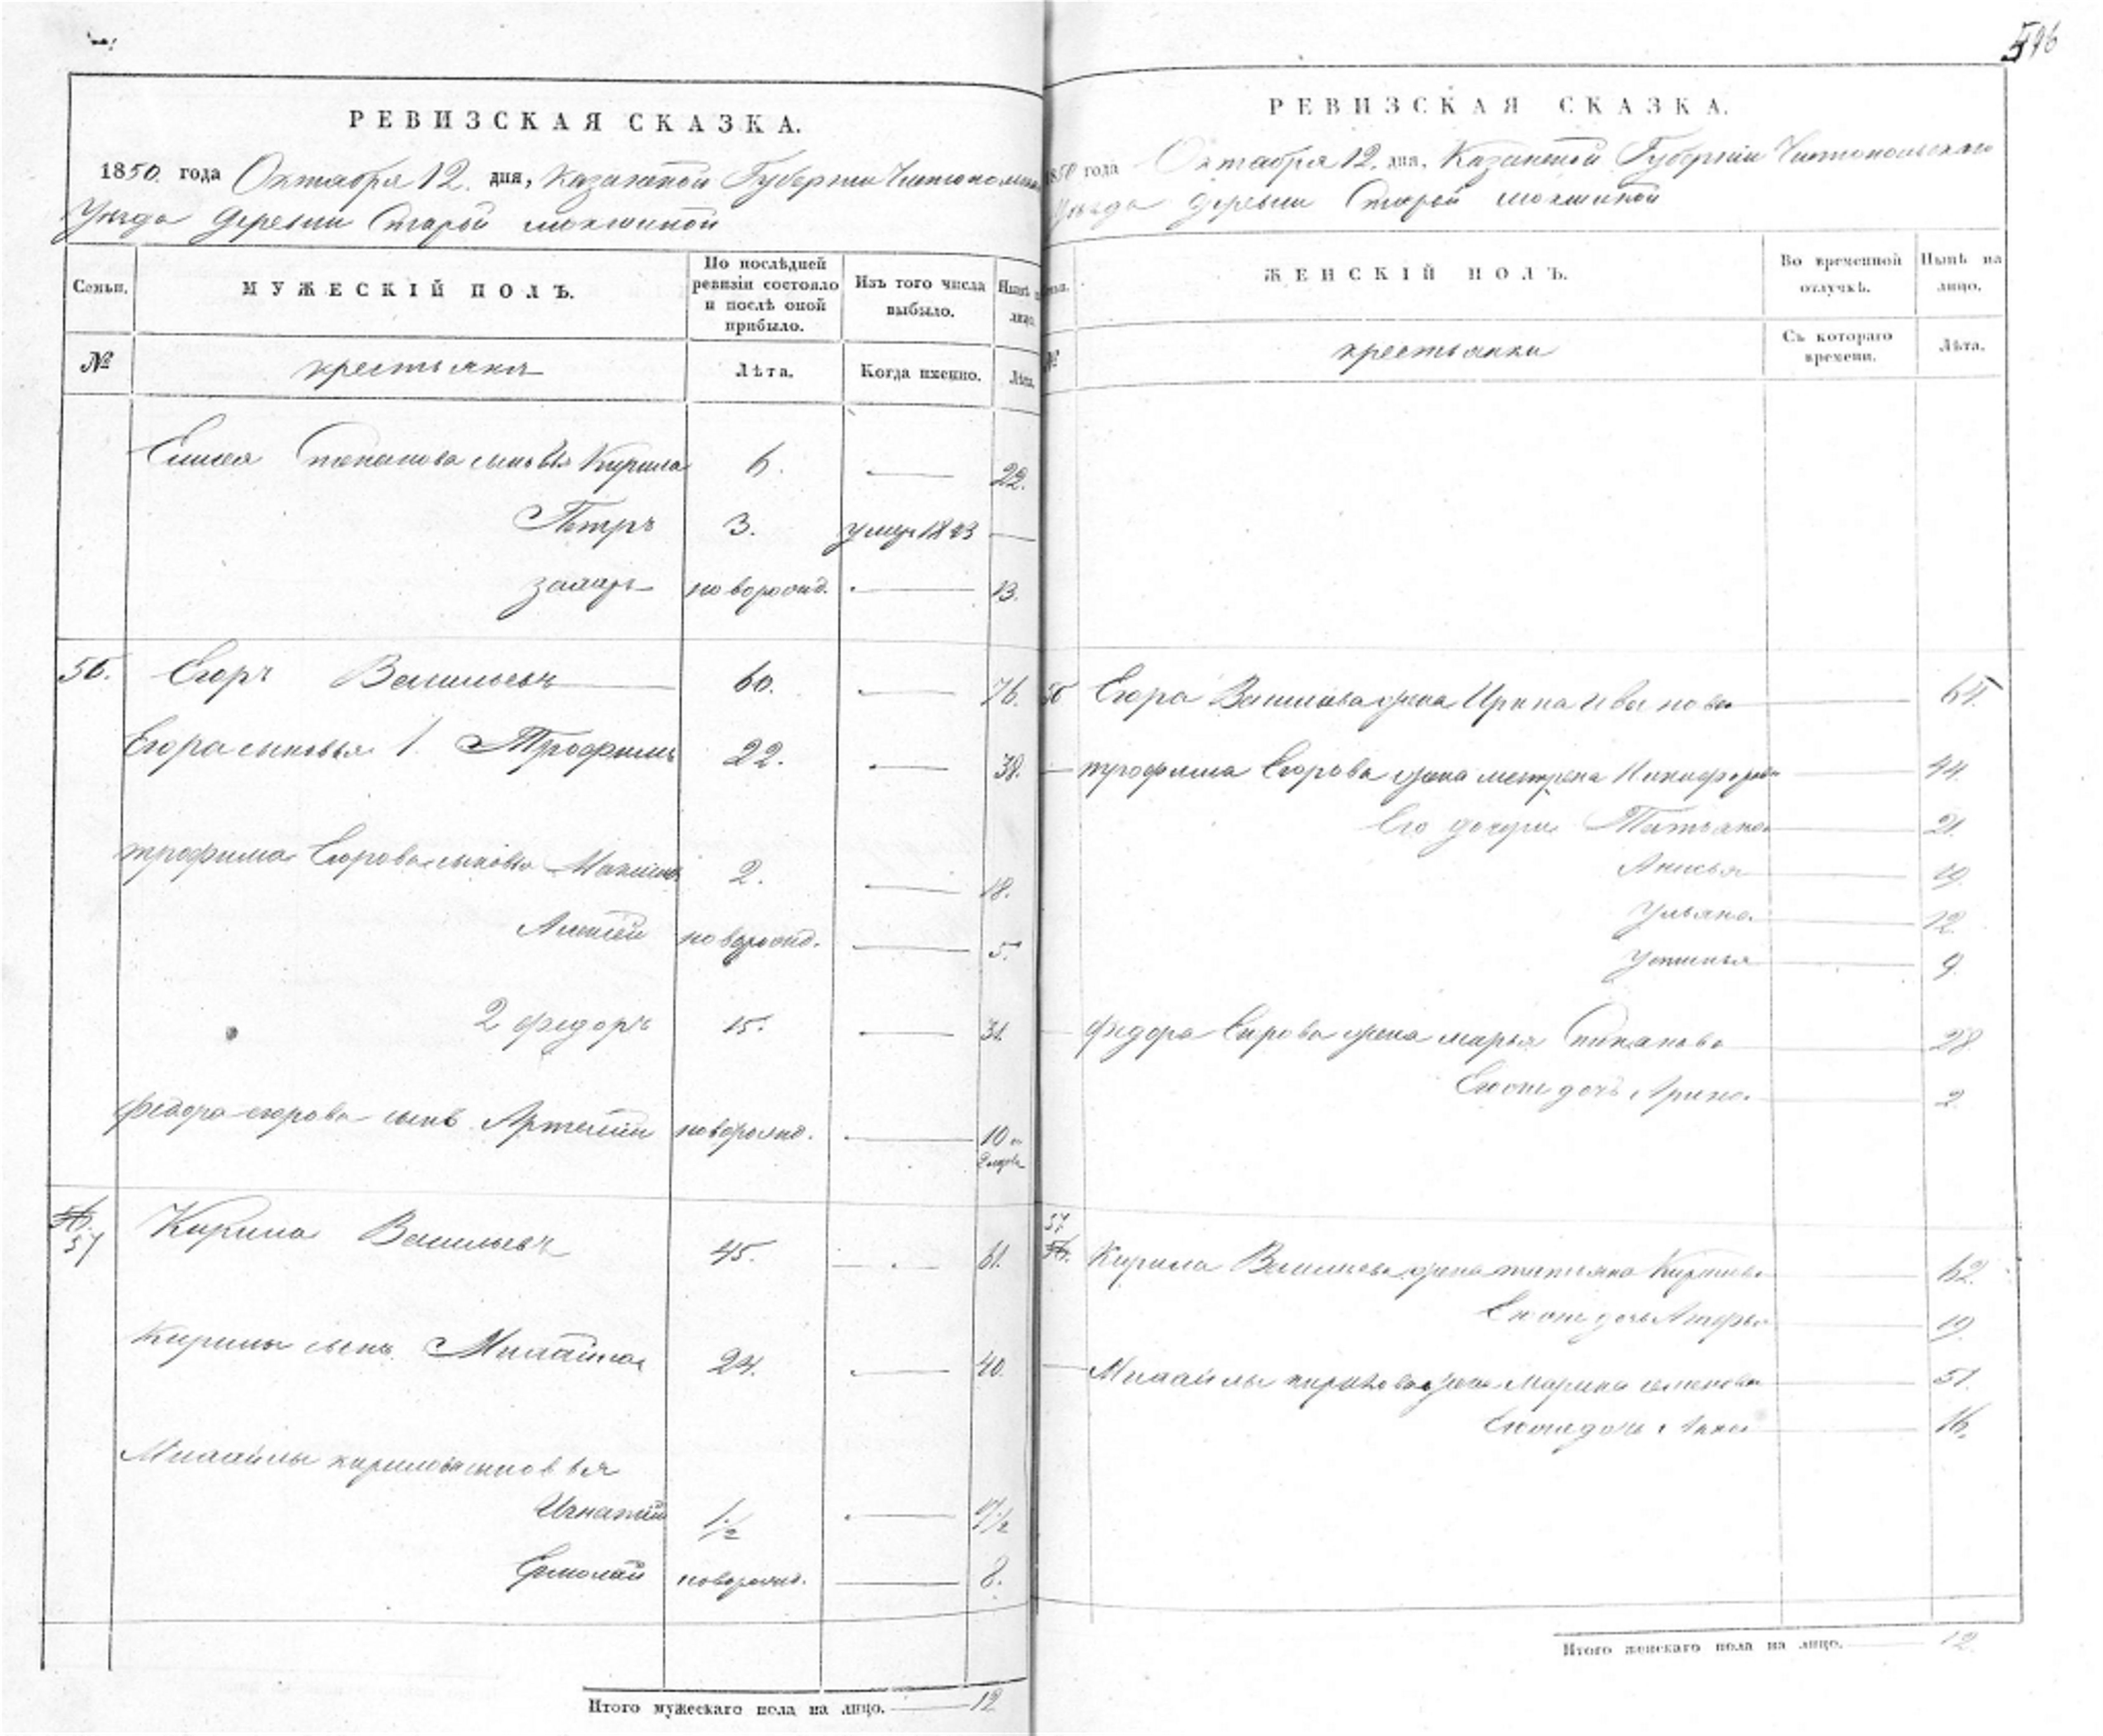 596
РЕВИЗСКАЯ СКАЗКА.
1850 года Октября 12. дня, Казанской Губернии Чистопольска
Уѣзда деревни Старой мокшиной
Семьи. МУЖЕСКІЙ ПОЛЪ. По послѣдней ревизіи состояло и послѣ оной прибыло. Изъ того числа выбыло. Нынѣ лицо.
№ крестьянъ Лѣта. Когда именно. Лѣта.
Степанова сыновья Кирила 6. — 22.
Петръ 3. умер 1843 —
Захаръ новорожд. — 13.
56. Егоръ Васильевъ 60. — 76.
Егора сыновья 1. Трофимъ 22. — 38.
трофима Егорова сыновья Максимъ 2. — 18.
Алексей новорожд. — 5.
2 федоръ 15. — 31.
федора егорова сынъ Артемий новорожд. — 10
56. 57 Кирила Васильевъ 45. — 61.
Кирилы сынъ Михайла 24. — 40.
Михайлы кирилова сыновья
Игнатий 1 1/2 — 17 1/2
Ермолай новорожд. — 8.
Итого мужескаго пола на лицо. — 12
РЕВИЗСКАЯ СКАЗКА.
1850 года Октября 12. дня, Казанской Губернии Чистопольскаго
Уѣзда деревни Старой мокшиной
ЖЕНСКІЙ ПОЛЪ. Во временной отлучкѣ. Нынѣ на лицо.
№ крестьянки Съ котораго времени. Лѣта.
56 Егора Васильева жена Ирина Иванова — 65.
трофима Егорова жена матрена Никифорова — 44.
Его дочери Татьяна — 21.
Анисья — 19.
Ульяна — 12
Устинья — 9.
федора Егорова жена марья Степанова — 28.
Егоже дочь Арина — 2.
57. 56. Кирила Васильева жена татьяна Кирилова — 62.
Егоже дочь — 19.
Михайлы кирилова жена Марина семенова — 51.
Егоже дочь Анна — 16.
Итого женскаго пола на лицо. — 12